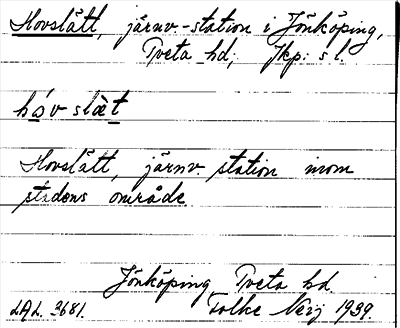 Hovslätt, järnv.-station i Jönköping,
Tveta hd; Jkp: s l.
hóv slæ̀t
Hovslätt, järnv. station inom
stadens område.
Jönköping Tveta hd.
LAL. 3681. Folke 1939.